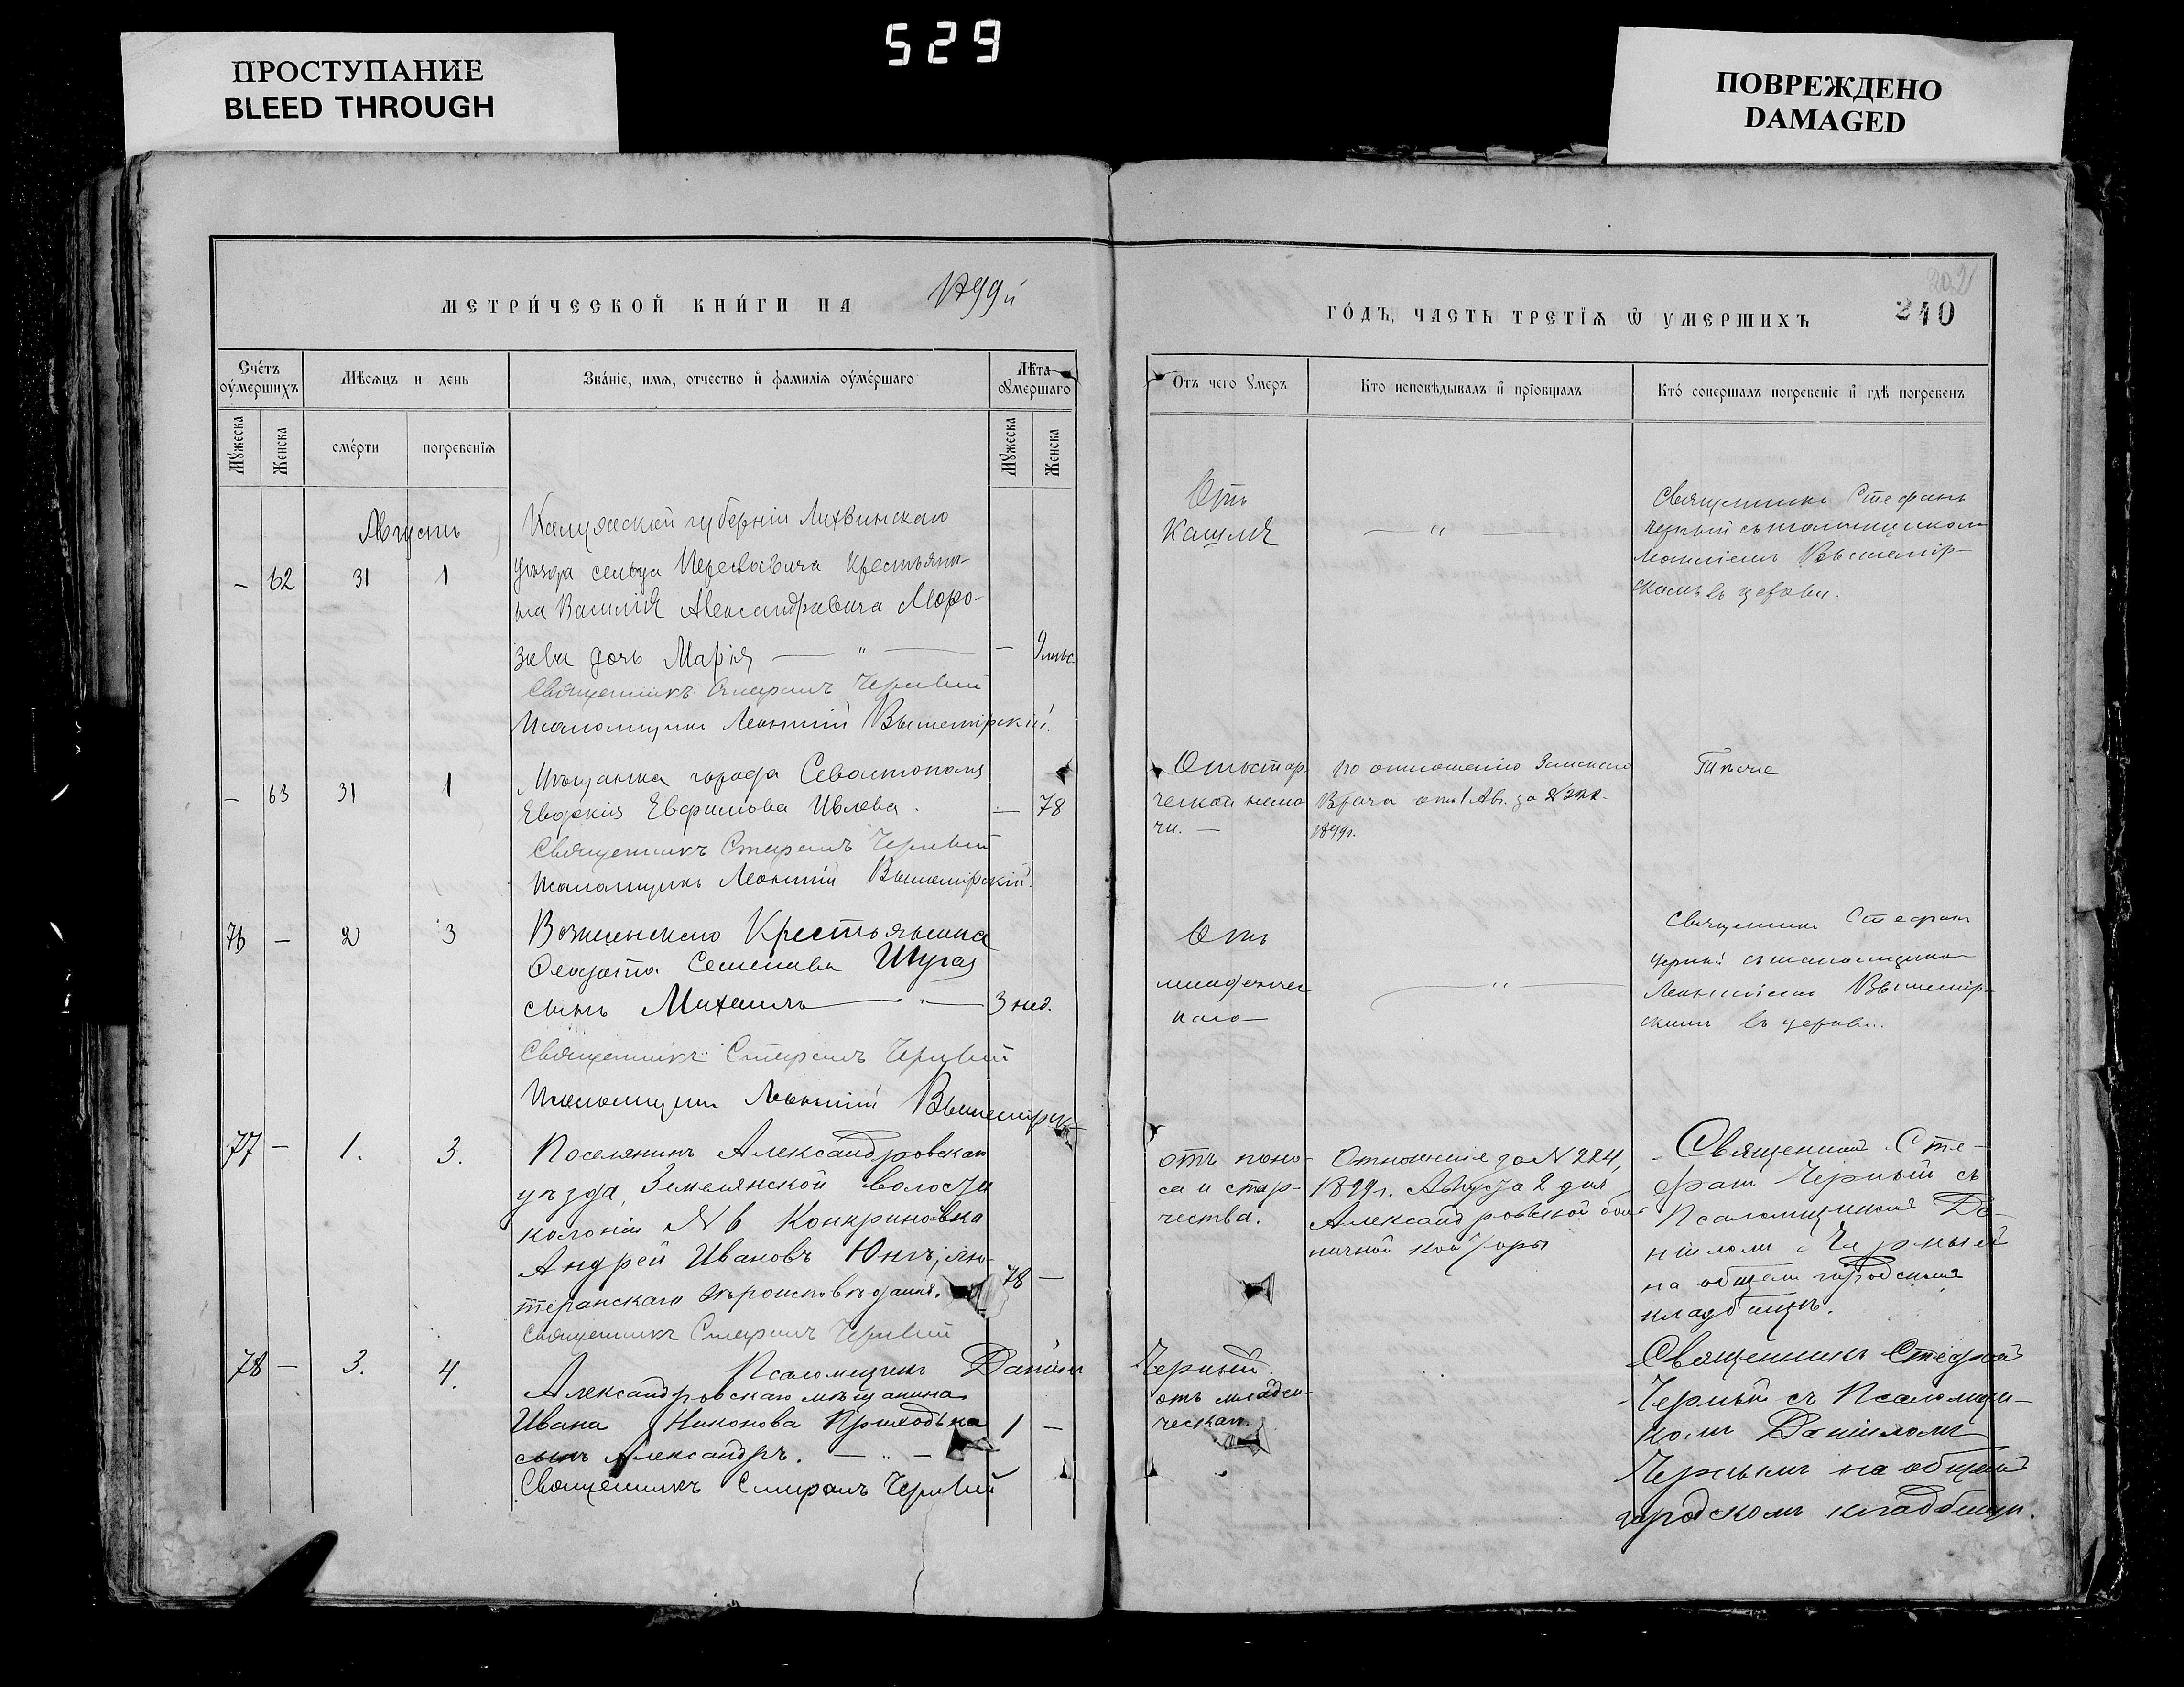 529
ПРОСТУПАНИЕ
BLEED THROUGH
ПОВРЕЖДЕНО
DAMAGED
МЕТРИ́ЧЕСКОЙ КНИ́ГИ НА 1899й
ГО́ДЪ, ЧАСТЬ ТРЕТІѦ Ѿ УМЕРШИХЪ
202
210
Сче́тъ оумершихъ
Мѣсѧцъ и день
Зва́ніе, имѧ, отчество и фамиліѧ оуме́ршаго
Лѣта оумершаго
Мꙋжеска
Женска
сме́рти
погребеніѧ
Мꙋжеска
Женска
Отъ чего Умеръ
Кто исповѣдывалъ и пріобщалъ
Кто́ совершалъ погребеніе и гдѣ погребенъ
Августъ
Калужской губерніи Лихвинскаго
– 62 31 1
уѣзда сельца крестьяни-
на Василія Александровича Моро-
зова дочь Марія — " — – 9 мѣс.
Священникъ Стефанъ Черный
Псаломщикъ Леонтій Вышемірскій.
Отъ
Кашля
— " —
Священникъ Стефанъ
Черный съ псаломщикомъ
Леонтіемъ Вышемір-
скимъ въ церкви.
– 63 31 1
Мѣщанка города Севастополя
Евдокія Евфимова Ивлева. — 78
Священникъ Стефанъ Черный
Псаломщикъ Леонтій Вышемірскій.
Отъ стар
ческой немо
чи. —
По отношенію Земскаго
Врача отъ 1 Авг. за №
1899г.
Тѣже
76 – 2 3
Вознесенскаго Крестьянина
Феодота Семенова
сынъ Михаилъ — " — 3 нед.
Священникъ Стефанъ Черный
Псаломщикъ Леонтій Вышемірск
Отъ
младенчес
каго
— " —
Священникъ Стефанъ
Черный съ псаломщиком
Леонтіемъ Вышемір-
скимъ въ церкви.
77 – 1. 3.
Поселянинъ Александровскаго
уѣзда, Землянской волости
колоніи № 6 Конкриновка
Андрей Ивановъ Юнгъ, лю-
теранскаго вѣроисповѣданія. 78 –
Священникъ Стефанъ Черный
Псаломщикъ Даніилъ Черный
отъ поно-
са и стар-
чества.
Отношеніе за № 224,
1899г. Августа 2 дня
Александровской боль
ничной конторы
Священникъ Сте-
фанъ Черный съ
Псаломщикомъ Да-
ніиломъ Чернымъ
на общемъ городскомъ
кладбищѣ.
78 – 3. 4.
Александровскаго мѣщанина
Ивана Никонова Приходька 1 –
сынъ Александръ. — " —
Священникъ Стефанъ Черный
отъ младен-
ческаго.
Священникъ Стефанъ
Черный съ Псаломщи-
комъ Даніиломъ
Чернымъ на общемъ
городскомъ кладбищѣ.